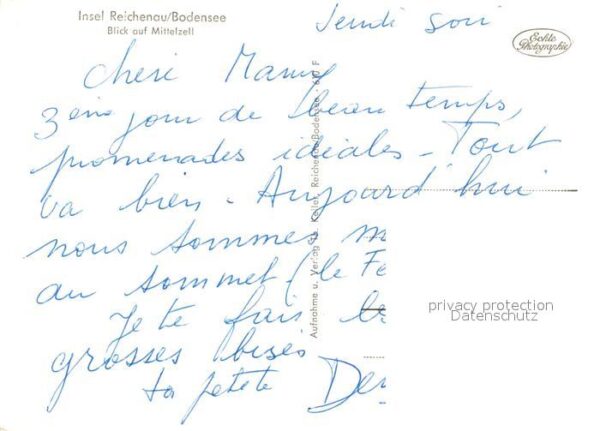 Insel Reichenau/Bodensee
Blick auf Mittelzell
Echte Photographie
Jeudi soir
Chère Mamy
3ème jour de beau temps,
promenades idéales - Tout
va bien - Aujourd'hui
nous sommes m
au sommet (le Fe
Je te fais
grosses bises
ta petite
Aufnahme u. Verlag Keller, Reichenau/Bodensee
privacy protection
Datenschutz